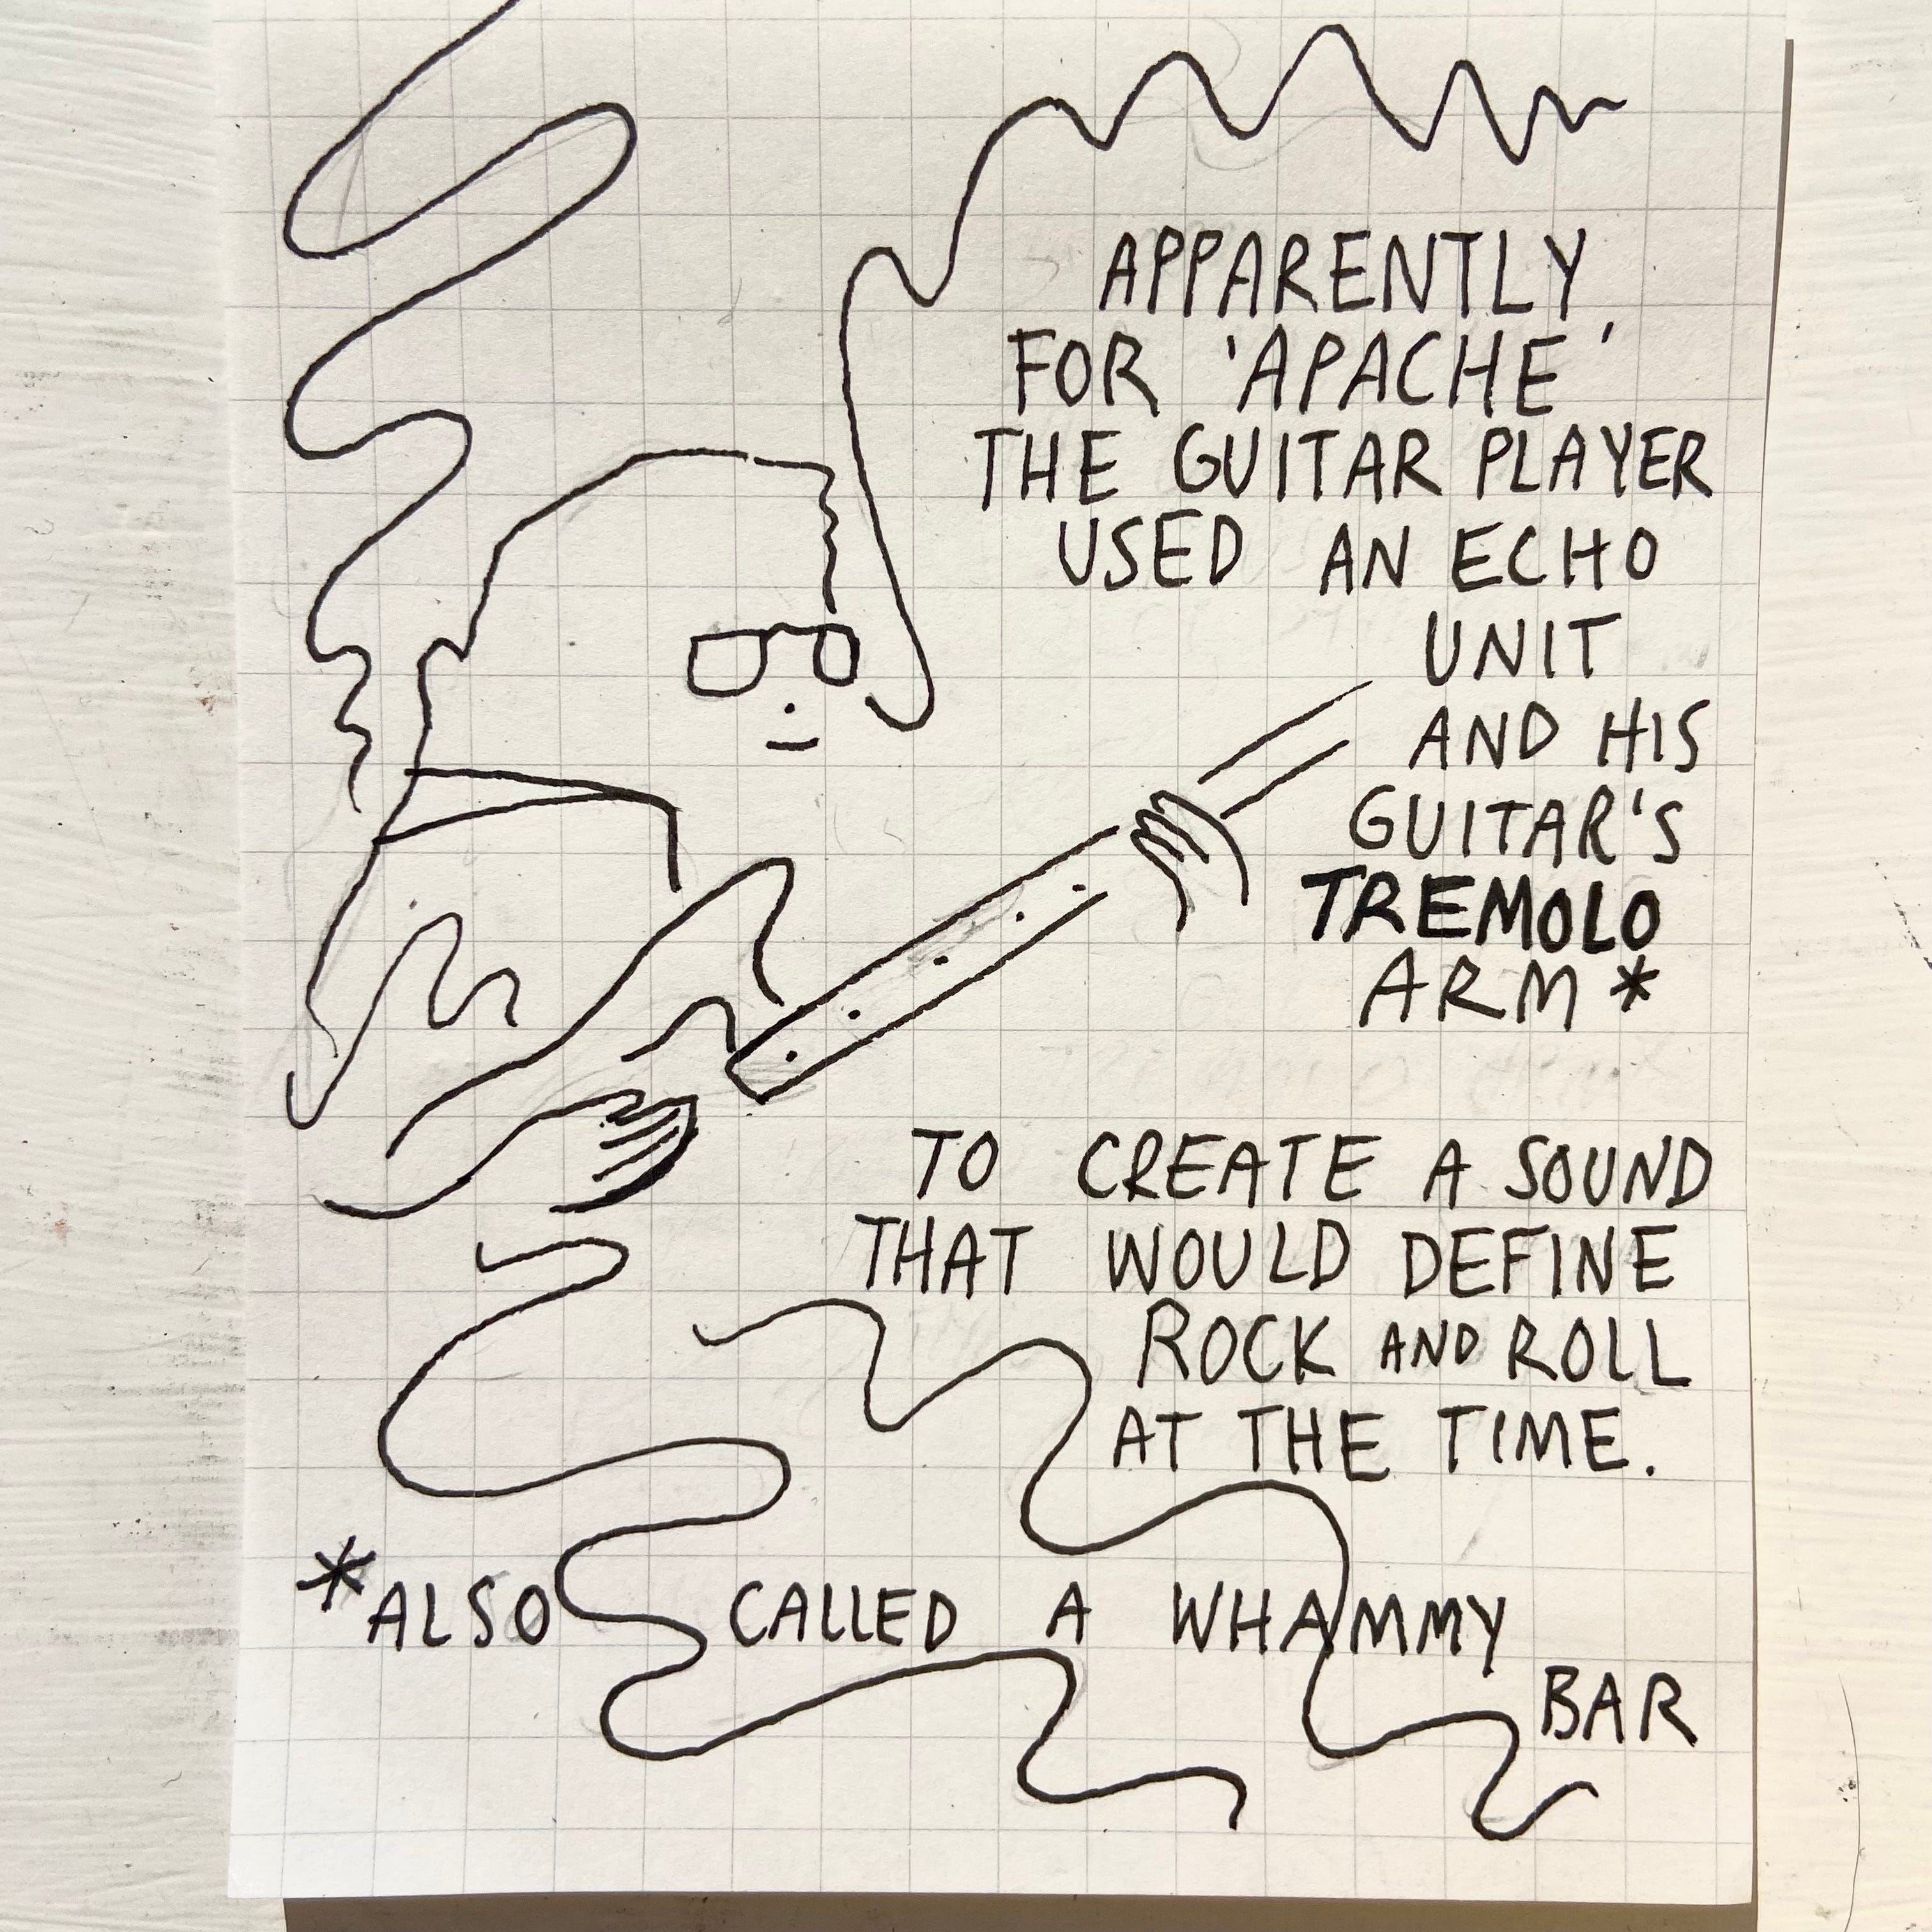 APPARENTLY,
FOR 'APACHE'
THE GUITAR PLAYER
USED AN ECHO
UNIT
AND HIS
GUITAR'S
TREMOLO
ARM *
TO CREATE A SOUND
THAT WOULD DEFINE
ROCK AND ROLL
AT THE TIME.
*ALSO CALLED A WHAMMY
BAR